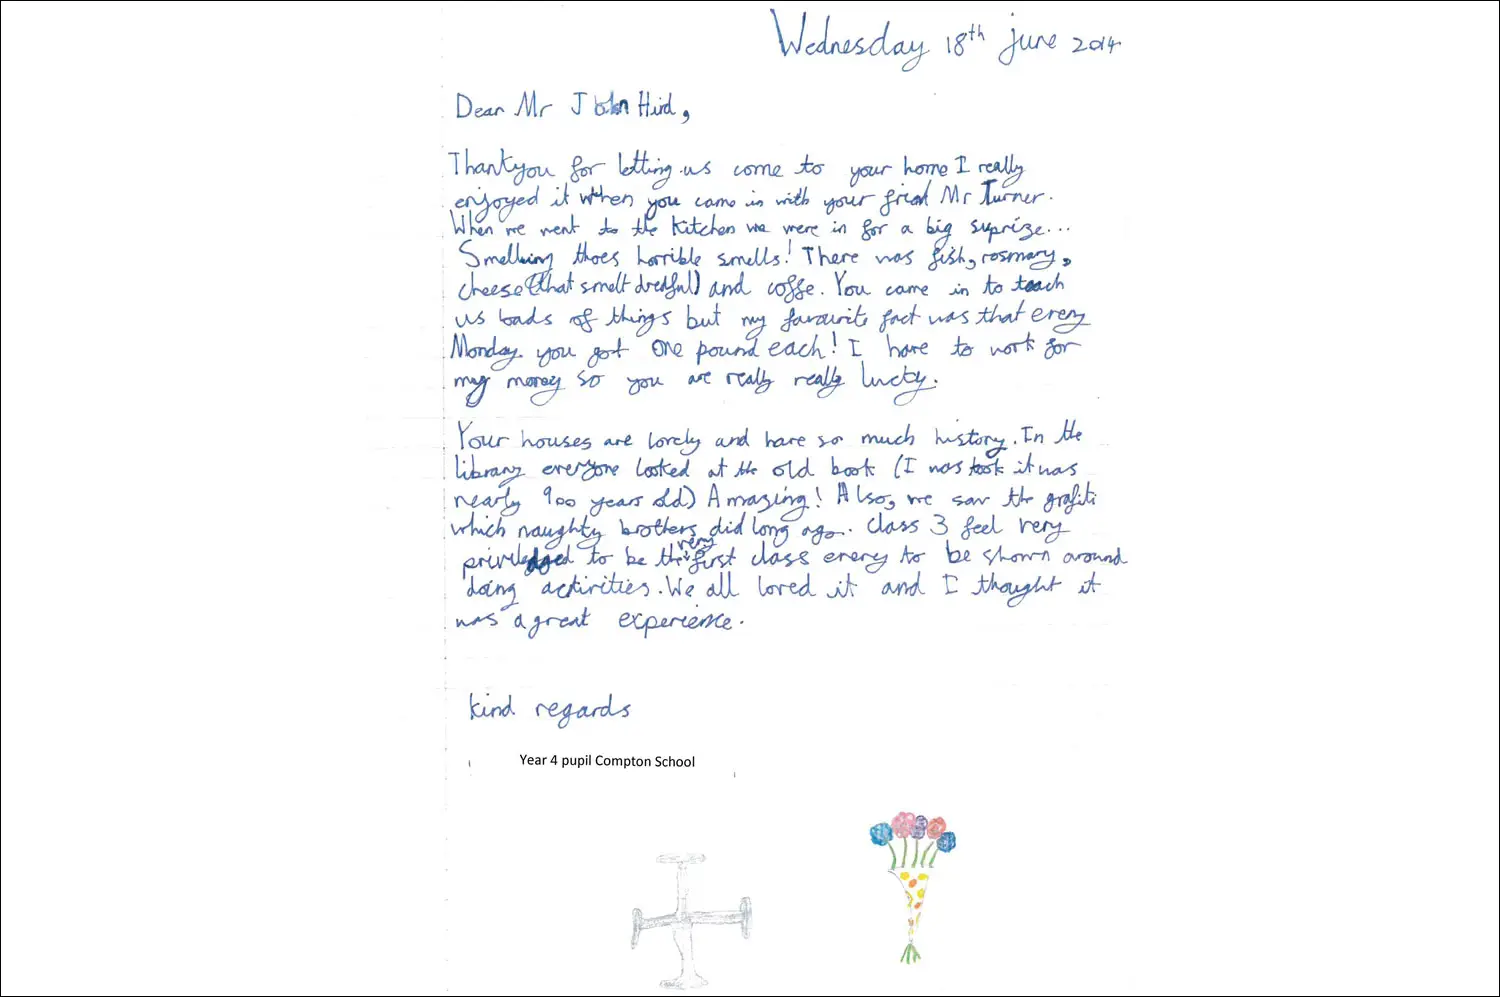 Wednesday 18th june 2014
Dear Mr John Hird,
Thankyou for letting us come to your home I really
enjoyed it when you came in with your friend Mr Turner.
When we went to the kitchen we were in for a big suprize...
Smelling thoes horrible smells! There was fish, rosmary,
cheese (that smelt dredful) and coffe. You came in to teach
us loads of things but my favourite fact was that every
Monday you got one pound each! I have to work for
my money so you are really really lucky.
Your houses are lovely and have so much history. In the
library everyone looked at the old book (I was took it was
nearly 900 years old) Amazing! Also, we saw the grafiti
which naughty brothers did long ago. Class 3 feel very
priviledged to be the very first class every to be shown around
doing activities. We all loved it and I thought it
was a great experience.
kind regards
Year 4 pupil Compton School